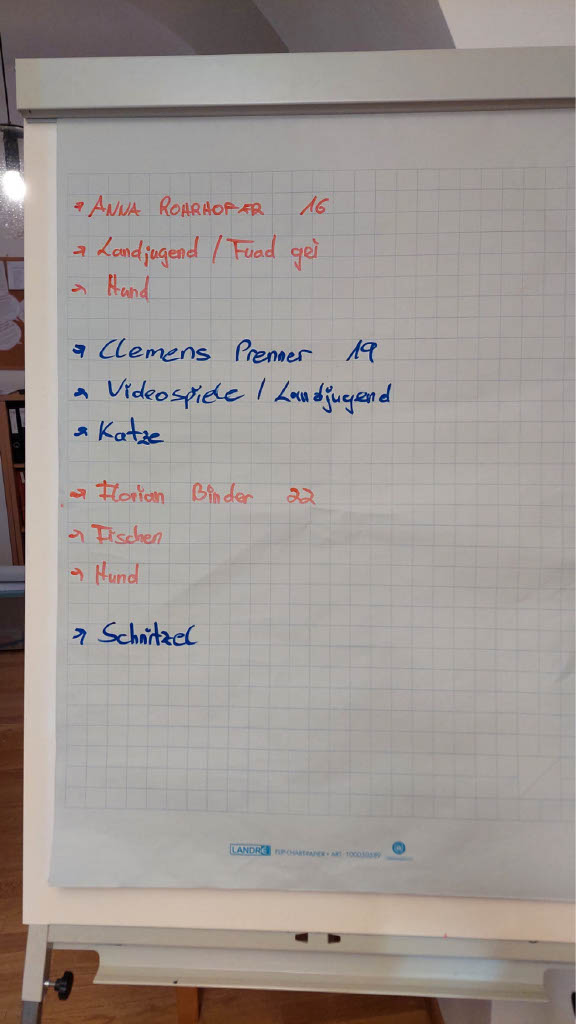 → ANNA ROHRHOFER 16
→ Landjugend / Fuad gei
→ Hund
→ Clemens Prenner 19
→ Videospiele / Landjugend
→ Katze
→ Florian Binder 22
→ Fischen
→ Hund
→ Schnitzel
LANDRÉ FLIP-CHARTPAPIER • ART.